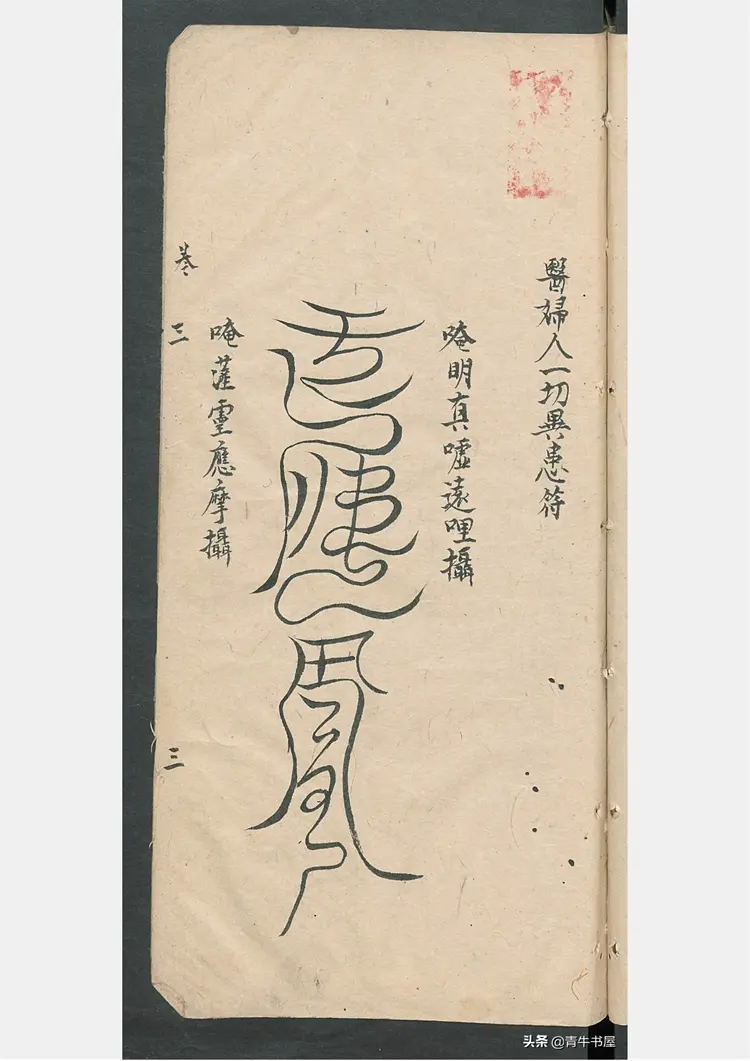 醫婦人一切異患符
唵明真噓遠哩攝
唵薩靈應摩攝
卷三
三
头条 @青牛书屋